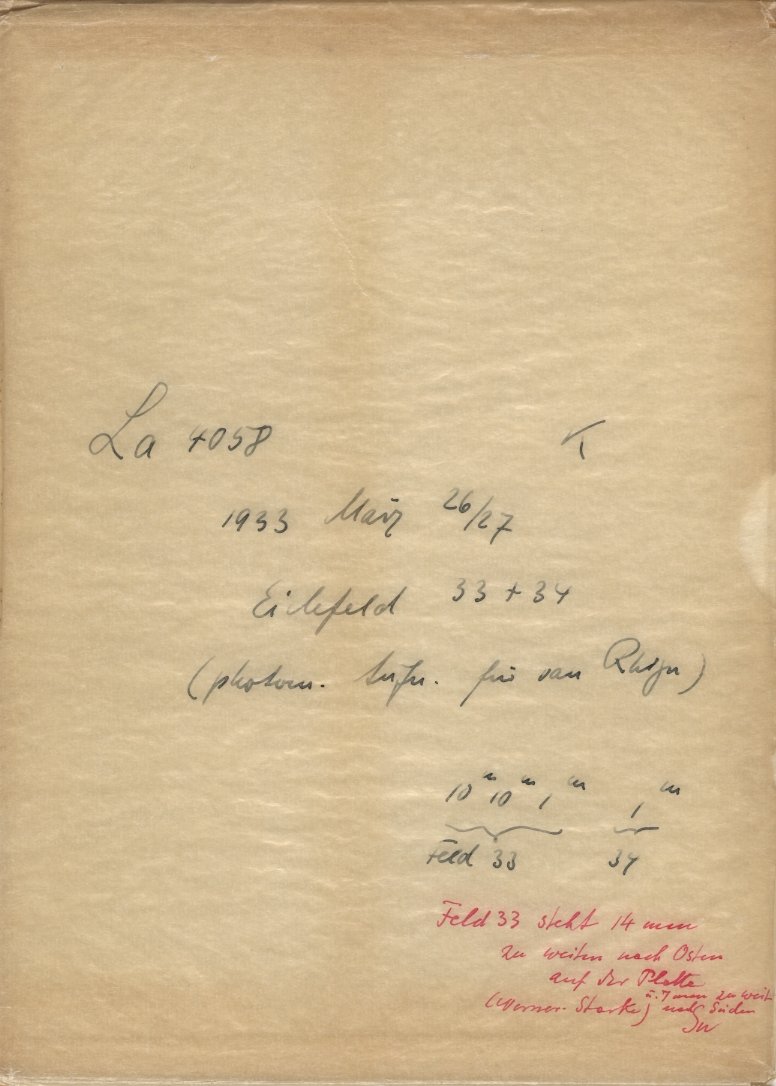 La 4058 K
1933 März 26/27
Eichfeld 33 + 34
(photom. Aufn. für van Rhijn)
10ᵐ 10ᵐ 1ᵐ 1ᵐ
Feld 33 34
Feld 33 steht 14 mm
zu weit nach Osten
auf der Platte
u. 7 mm zu weit
nach Süden